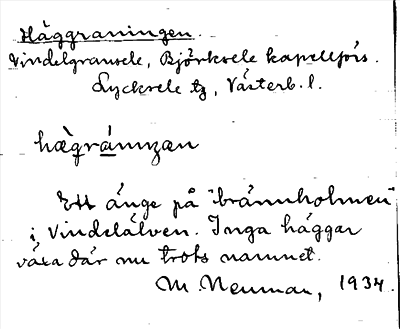 Häggraningen.
Vindelgransele, Björksele kapellförs.
Lycksele tg, Västerb. l.
hæ̀gránıŋan
Ett änge på "brännholmen"
i Vindelälven. Inga häggar
växa där nu trots namnet.
M. Neuman, 1934.